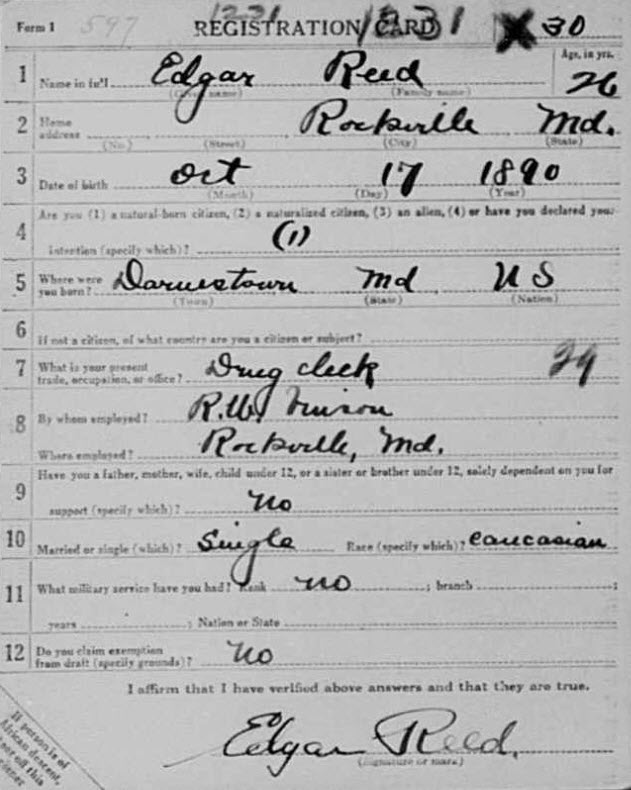 Form 1 597 1221 REGISTRATION CARD 1831 X 30
1 Name in full Edgar Reed Age, in yrs. 26
(Given name) (Family name)
2 Home address Rockville Md.
(No.) (Street) (City) (State)
3 Date of birth Oct 17 1890
(Month) (Day) (Year)
4 Are you (1) a natural-born citizen, (2) a naturalized citizen, (3) an alien, (4) or have you declared your
intention (specify which)? (1)
5 Where were you born? Darnestown Md US
(Town) (State) (Nation)
6 If not a citizen, of what country are you a citizen or subject?
7 What is your present trade, occupation, or office? Drug clerk 29
8 By whom employed? R.W. Vinson
Where employed? Rockville, Md.
9 Have you a father, mother, wife, child under 12, or a sister or brother under 12, solely dependent on you for
support (specify which)? No
10 Married or single (which)? Single Race (specify which)? Caucasian
11 What military service have you had? Rank no ; branch ;
years ; Nation or State
12 Do you claim exemption from draft (specify grounds)? No
I affirm that I have verified above answers and that they are true.
Edgar Reed.
(Signature or mark)
If person is of
African descent,
off this
corner